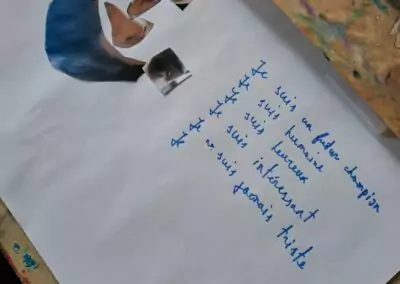 Je suis un futur champion
Je suis humaine
Je suis heureux
Je suis intéressant
Je ne suis jamais triste